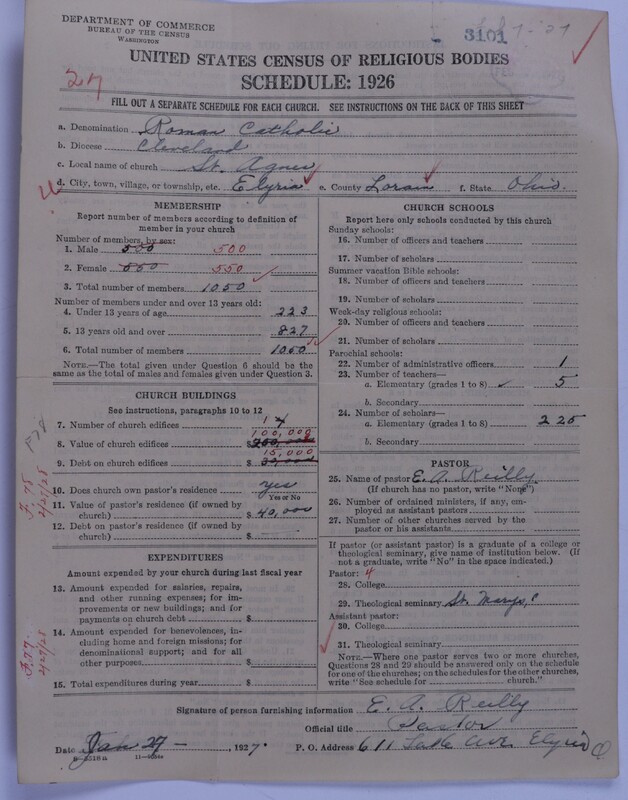 DEPARTMENT OF COMMERCE
BUREAU OF THE CENSUS
WASHINGTON
3101
UNITED STATES CENSUS OF RELIGIOUS BODIES
SCHEDULE: 1926
27
FILL OUT A SEPARATE SCHEDULE FOR EACH CHURCH. SEE INSTRUCTIONS ON THE BACK OF THIS SHEET
a. Denomination Roman Catholic
b. Diocese Cleveland
c. Local name of church St. Agnes
d. City, town, village, or township, etc. Elyria e. County Lorain f. State Ohio.
MEMBERSHIP
Report number of members according to definition of
member in your church
Number of members, by sex:
1. Male 500 500
2. Female 550
3. Total number of members 1050
Number of members under and over 13 years old:
4. Under 13 years of age 223
5. 13 years old and over 827
6. Total number of members 1050
NOTE.—The total given under Question 6 should be
same as the total of males and females given under Question 3.
CHURCH BUILDINGS
See instructions, paragraphs 10 to 12
7. Number of church edifices 1
100,000
8. Value of church edifices $
15,000
9. Debt on church edifices $
10. Does church own pastor's residence yes
Yes or No
11. Value of pastor's residence (if owned by
church) $ 40,000
12. Debt on pastor's residence (if owned by
church) $
EXPENDITURES
Amount expended by your church during last fiscal year
13. Amount expended for salaries, repairs,
and other running expenses; for im-
provements or new buildings; and for
payments on church debt $
14. Amount expended for benevolences, in-
cluding home and foreign missions; for
denominational support; and for all
other purposes $
15. Total expenditures during year $
CHURCH SCHOOLS
Report here only schools conducted by this church
Sunday schools:
16. Number of officers and teachers
17. Number of scholars
Summer vacation Bible schools:
18. Number of officers and teachers
19. Number of scholars
Week-day religious schools:
20. Number of officers and teachers
21. Number of scholars
Parochial schools:
22. Number of administrative officers 1
23. Number of teachers—
a. Elementary (grades 1 to 8) 5
b. Secondary
24. Number of scholars—
a. Elementary (grades 1 to 8) 225
b. Secondary
PASTOR
25. Name of pastor E. A. Reilly
(If church has no pastor, write "None")
26. Number of ordained ministers, if any, em-
ployed as assistant pastors
27. Number of other churches served by the
pastor or his assistants
If pastor (or assistant pastor) is a graduate of a college or
theological seminary, give name of institution below. (If
not a graduate, write "No" in the space indicated.)
Pastor: 4
28. College
29. Theological seminary St. Marys,
Assistant pastor:
30. College
31. Theological seminary
NOTE.—Where one pastor serves two or more churches,
Questions 28 and 29 should be answered only on the schedule
for one of the churches; on the schedules for the other churches,
write "See schedule for church."
Signature of person furnishing information E. A. Reilly
Official title Pastor
Date Jan 27 — , 1927. P. O. Address 611 Lake Ave Elyria O
F.75 4/27/28
F.77 4/27/28